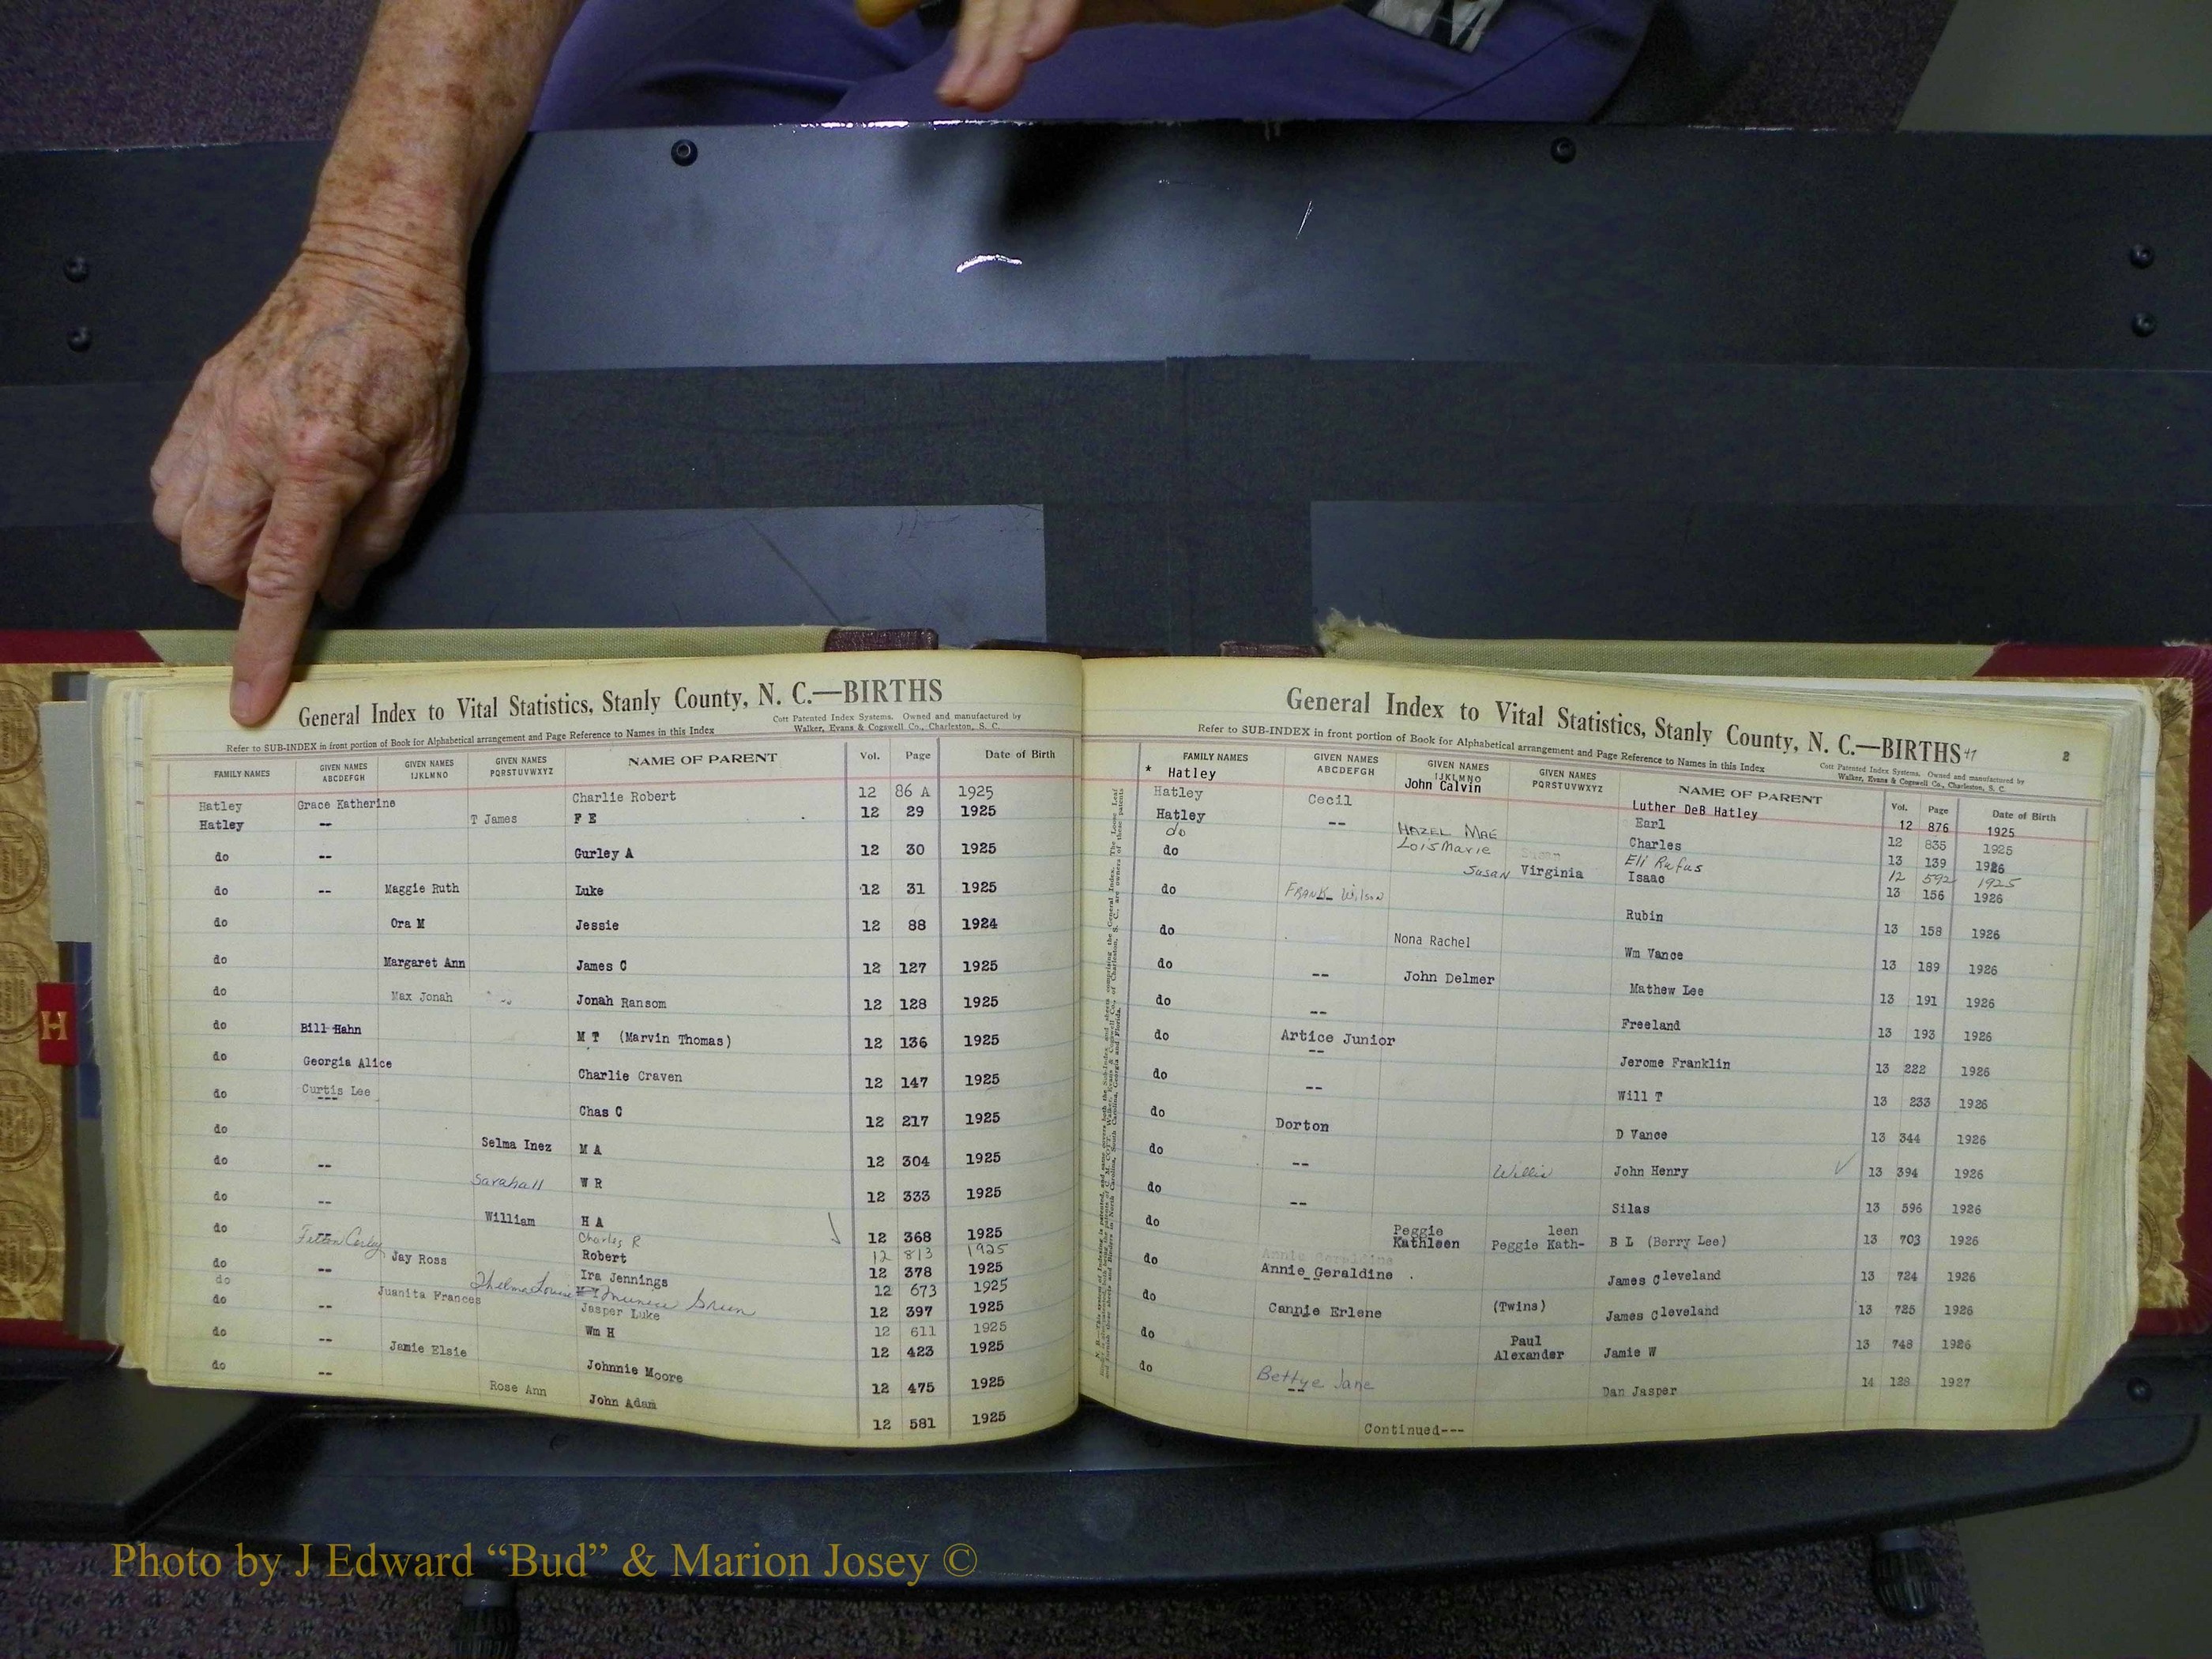 General Index to Vital Statistics, Stanly County, N. C.—BIRTHS
Refer to SUB-INDEX in front portion of Book for Alphabetical arrangement and Page Reference to Names in this Index
Cott Patented Index Systems. Owned and manufactured by
Walker, Evans & Cogswell Co., Charleston, S. C.
FAMILY NAMES GIVEN NAMES ABCDEFGH GIVEN NAMES IJKLMNO GIVEN NAMES PQRSTUVWXYZ NAME OF PARENT Vol. Page Date of Birth
Hatley Grace Katherine Charlie Robert 12 86 A 1925
Hatley -- T James F E 12 29 1925
do -- Gurley A 12 30 1925
do -- Maggie Ruth Luke 12 31 1925
do Ora M Jessie 12 88 1924
do Margaret Ann James C 12 127 1925
do Max Jonah Jonah Ransom 12 128 1925
do Bill Hahn M T (Marvin Thomas) 12 136 1925
do Georgia Alice Charlie Craven 12 147 1925
do Curtis Lee --- Chas C 12 217 1925
do Selma Inez M A 12 304 1925
do -- W R 12 333 1925
do -- William H A 12 368 1925
Charles R 12 813 1925
do -- Jay Ross Robert 12 378 1925
do -- Ira Jennings 12 673 1925
do Thelma Louise Green 12 397 1925
Juanita Frances Jasper Luke 12 611 1925
do -- Wm H 12 423 1925
do -- Jamie Elsie Johnnie Moore 12 475 1925
do -- Rose Ann John Adam 12 581 1925
General Index to Vital Statistics, Stanly County, N. C.—BIRTHS
2
Refer to SUB-INDEX in front portion of Book for Alphabetical arrangement and Page Reference to Names in this Index
Cott Patented Index Systems. Owned and manufactured by
Walker, Evans & Cogswell Co., Charleston, S. C.
FAMILY NAMES GIVEN NAMES ABCDEFGH GIVEN NAMES IJKLMNO GIVEN NAMES PQRSTUVWXYZ NAME OF PARENT Vol. Page Date of Birth
* Hatley John Calvin Luther DeB Hatley 12 876 1925
Hatley Cecil Earl 12 835 1925
Hatley -- HAZEL MAE Charles 13 139 1926
do Lois Marie Eli Rufus 12 592 1925
do Susan Virginia Isaac 13 156 1926
do FRANK Wilson Rubin 13 158 1926
do Nona Rachel Wm Vance 13 189 1926
do -- John Delmer Mathew Lee 13 191 1926
do -- Freeland 13 193 1926
do Artice Junior -- Jerome Franklin 13 222 1926
do -- Will T 13 233 1926
do Dorton D Vance 13 344 1926
do -- Willie John Henry 13 394 1926
do -- Silas 13 596 1926
do Peggie Kathleen Peggie Kath-leen B L (Berry Lee) 13 703 1926
do Annie Geraldine -- James Cleveland 13 724 1926
do Cannie Erlene -- (Twins) James Cleveland 13 725 1926
do Paul Alexander Jamie W 13 748 1926
do Bettye Jane -- Dan Jasper 14 128 1927
Continued---
H
Photo by J Edward “Bud” & Marion Josey ©